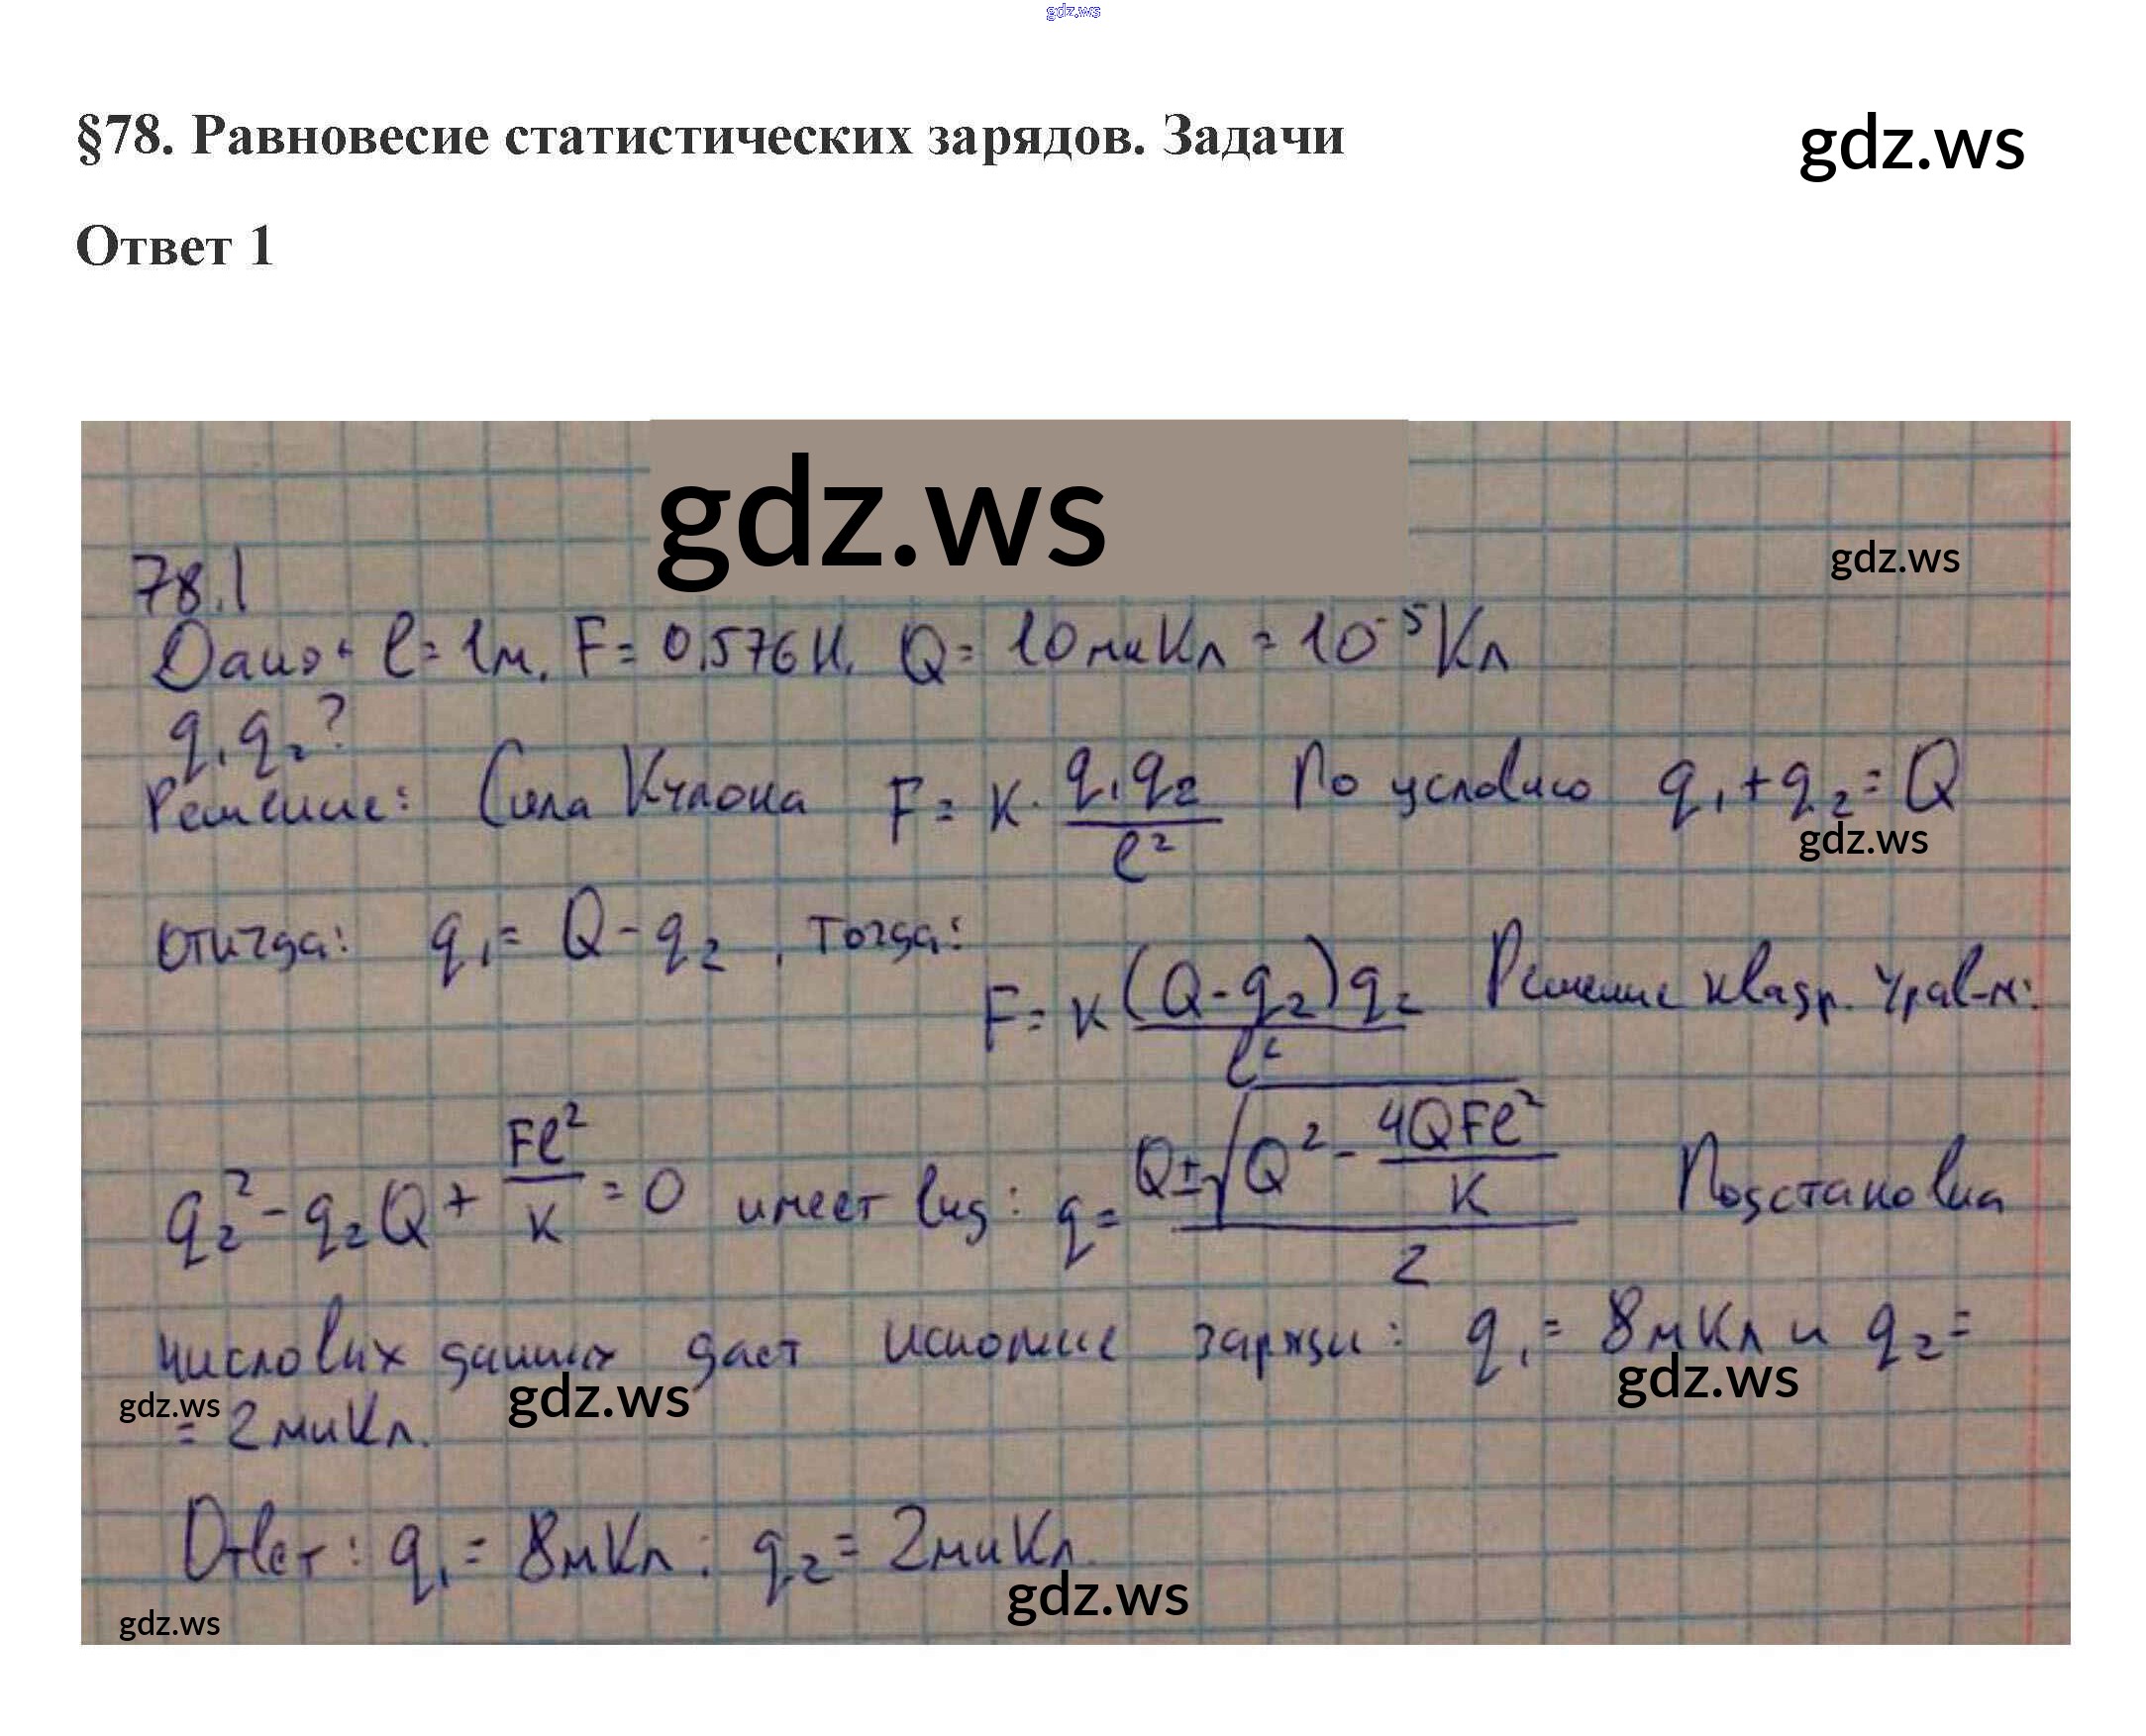 gdz.ws
§78. Равновесие статистических зарядов. Задачи
gdz.ws
Ответ 1
gdz.ws
gdz.ws
78.1
Дано: l = 1м, F = 0,576 Н, Q = 10 мкКл = 10⁻⁵ Кл
q₁ q₂ ?
Решение: Сила Кулона F = k · q₁q₂ / l² По условию q₁ + q₂ = Q
gdz.ws
откуда: q₁ = Q - q₂, тогда:
F = k (Q - q₂)q₂ / l² Решение квадр. урав-я:
q₂² - q₂Q + Fl²/k = 0 имеет вид: q = (Q ± √(Q² - 4QFl²/k)) / 2 Подстановка
числовых данных даст искомые заряды: q₁ = 8мКл и q₂ =
gdz.ws
gdz.ws
gdz.ws
= 2мкКл.
Ответ: q₁ = 8мКл; q₂ = 2мкКл.
gdz.ws
gdz.ws